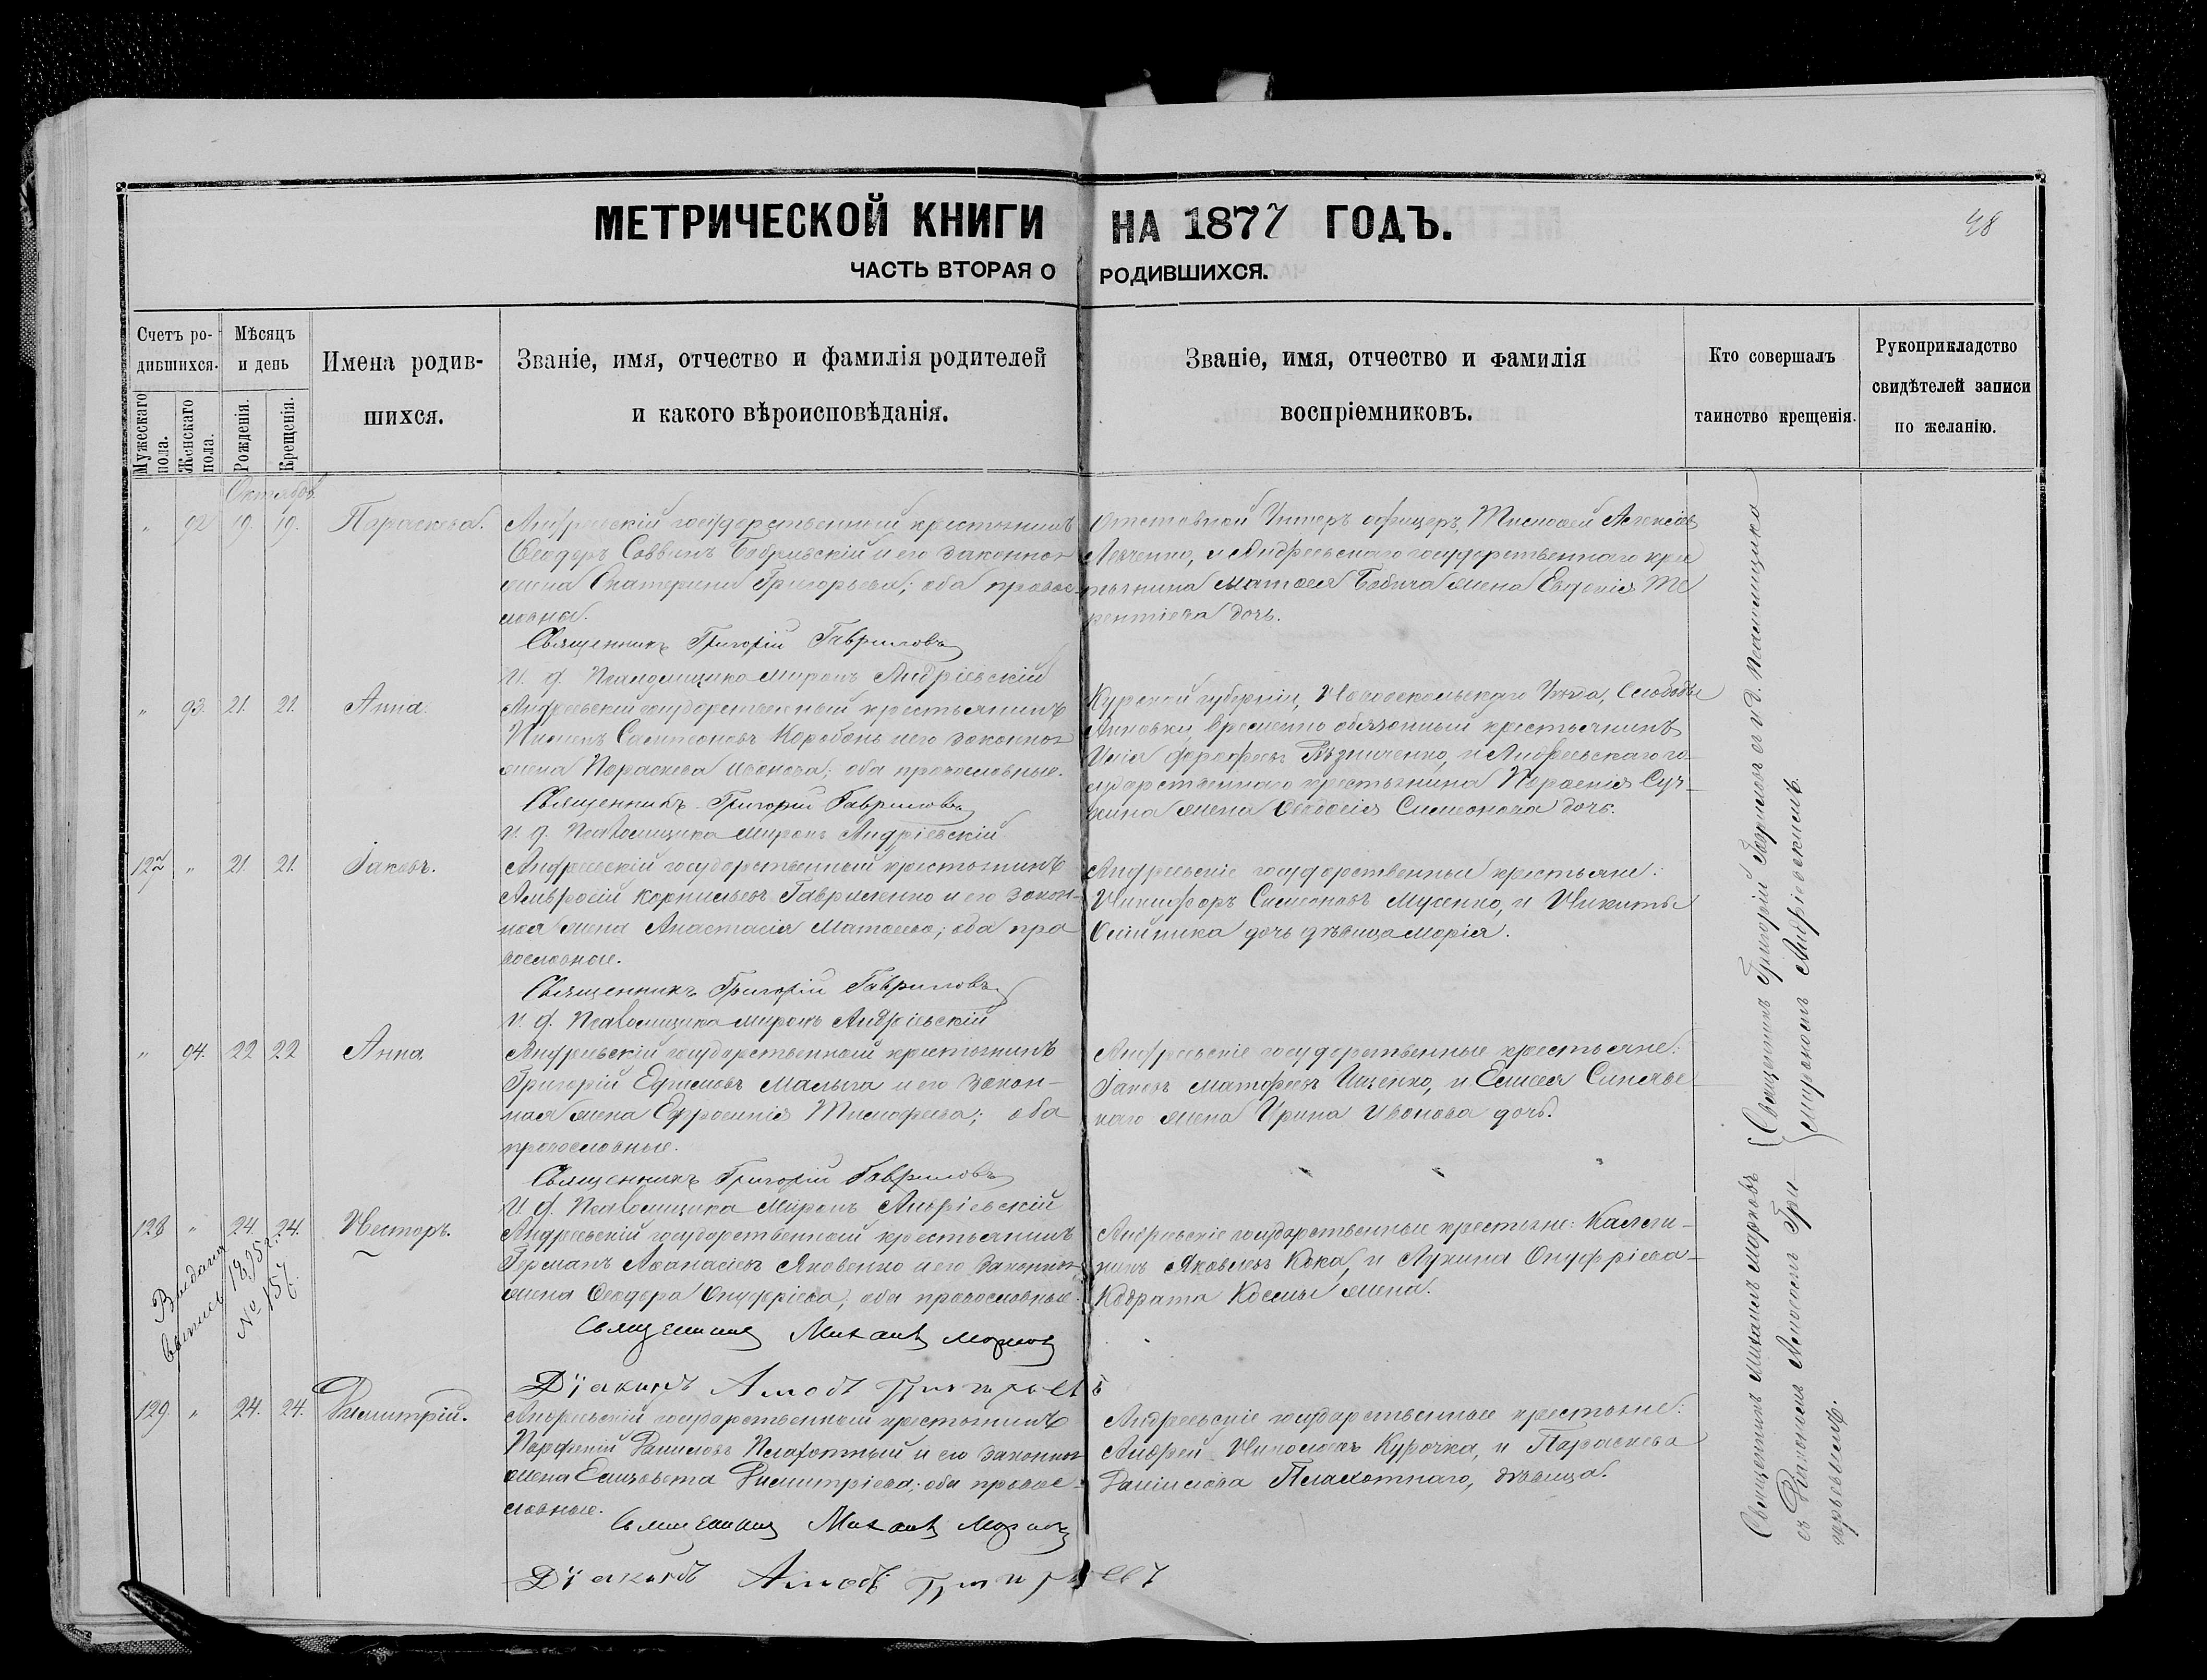 МЕТРИЧЕСКОЙ КНИГИ НА 1877 ГОДЪ.
48
ЧАСТЬ ВТОРАЯ О РОДИВШИХСЯ.
Счетъ родившихся.
Мужескаго пола.
Женскаго пола.
Мѣсяцъ и день
Рожденія.
Крещенія.
Имена родив-
шихся.
Званіе, имя, отчество и фамилія родителей
и какого вѣроисповѣданія.
Званіе, имя, отчество и фамилія
воспріемниковъ.
Кто совершалъ
таинство крещенія.
Рукоприкладство
свидѣтелей записи
по желанію.
Октябрь
" 92 19. 19. Параскева.
Андреевскій государственный крестьянинъ
Ѳеодоръ Саввинъ и его законная
жена Екатерина Григорьева; оба право-
славные.
Священникъ Григорій Гавриловъ
И. д. Псаломщика Миронъ Андріевскій
Отставной Унтеръ офицеръ, Тимоѳей Алексіевъ
Левченко, и Андреевскаго государственнаго кре-
стьянина Матѳея Бабича жена Евгенія Те-
рентіева дочь.
" 93. 21. 21. Анна.
Андреевскій государственный крестьянинъ
Пименъ Симеоновъ Корабань и его законная
жена Параскева Иванова; оба православные.
Священникъ Григорій Гавриловъ
и. д. Псаломщика Миронъ Андріевскій
Курской губерніи, Новооскольскаго Уѣзда, Слободы
временно обязанный крестьянинъ
и Андреевскаго го-
сударственнаго крестьянина
жена Ѳеодосія Симеонова дочь.
127 " 21. 21. Іаковъ.
Андреевскій государственный крестьянинъ
Амвросій Корнильевъ Гавриленко и его закон-
ная жена Анастасія Матѳеева; оба пра-
вославные.
Священникъ Григорій Гавриловъ
и. д. Псаломщика Миронъ Андріевскій
Андреевскіе государственные крестьяне:
Никифоръ Симеоновъ Мусенко, и Никиты
Олійника дочь дѣвица Марія.
" 94. 22 22 Анна
Андреевскій государственный крестьянинъ
Григорій Ефимовъ Малыга и его закон-
ная жена Ефросинія Тимофеева; оба
православные.
Священникъ Григорій Гавриловъ
И. д. Псаломщика Миронъ Андріевскій
Андреевскіе государственные крестьяне:
Іаковъ Матфеевъ Ищенко, и Елисея Синявс-
каго жена Ирина Иванова дочь.
128 " 24. 24. Несторъ.
Выдана
1895 г.
№ 157.
Андреевскій государственный крестьянинъ
Германъ Аѳанасіевъ Яковенко и его законная
жена Ѳеодора Онуфріева; оба православные.
Священникъ Михаилъ Марковъ
Діаконъ Григорьевъ
Андреевскіе государственные крестьяне: Калли-
никъ Яковлевъ Кока, и Лукина Онуфріева
Кодрата Косма жена.
129 " 24. 24. Димитрій.
Андреевскій государственный крестьянинъ
Парфеній Даниловъ Плахотный и его законная
жена Елизавета Димитріева; оба право-
славные.
Священникъ Михаилъ Марковъ
Діаконъ Григорьевъ
Андреевскіе государственные крестьяне:
Андрей Николаевъ Курочка, и Параскева
Даніилова Плахотнаго, дѣвица.
Священникъ Григорій Гавриловъ съ и. д. Псаломщика
Мирономъ Андріевскимъ.
Священникъ Михаилъ Марковъ
съ Діакономъ Гри-
горьевымъ.